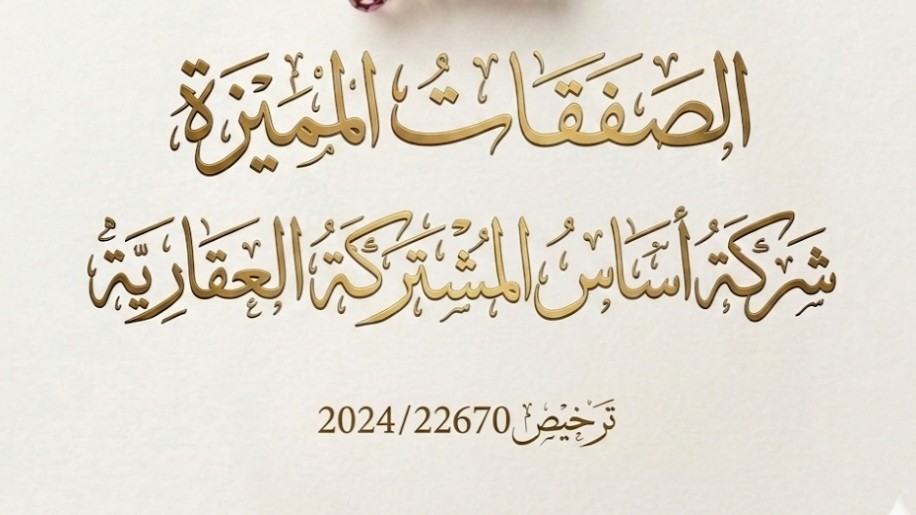 الصفقات المميزة
شركة أساس المشتركة العقارية
ترخيص 2024/22670